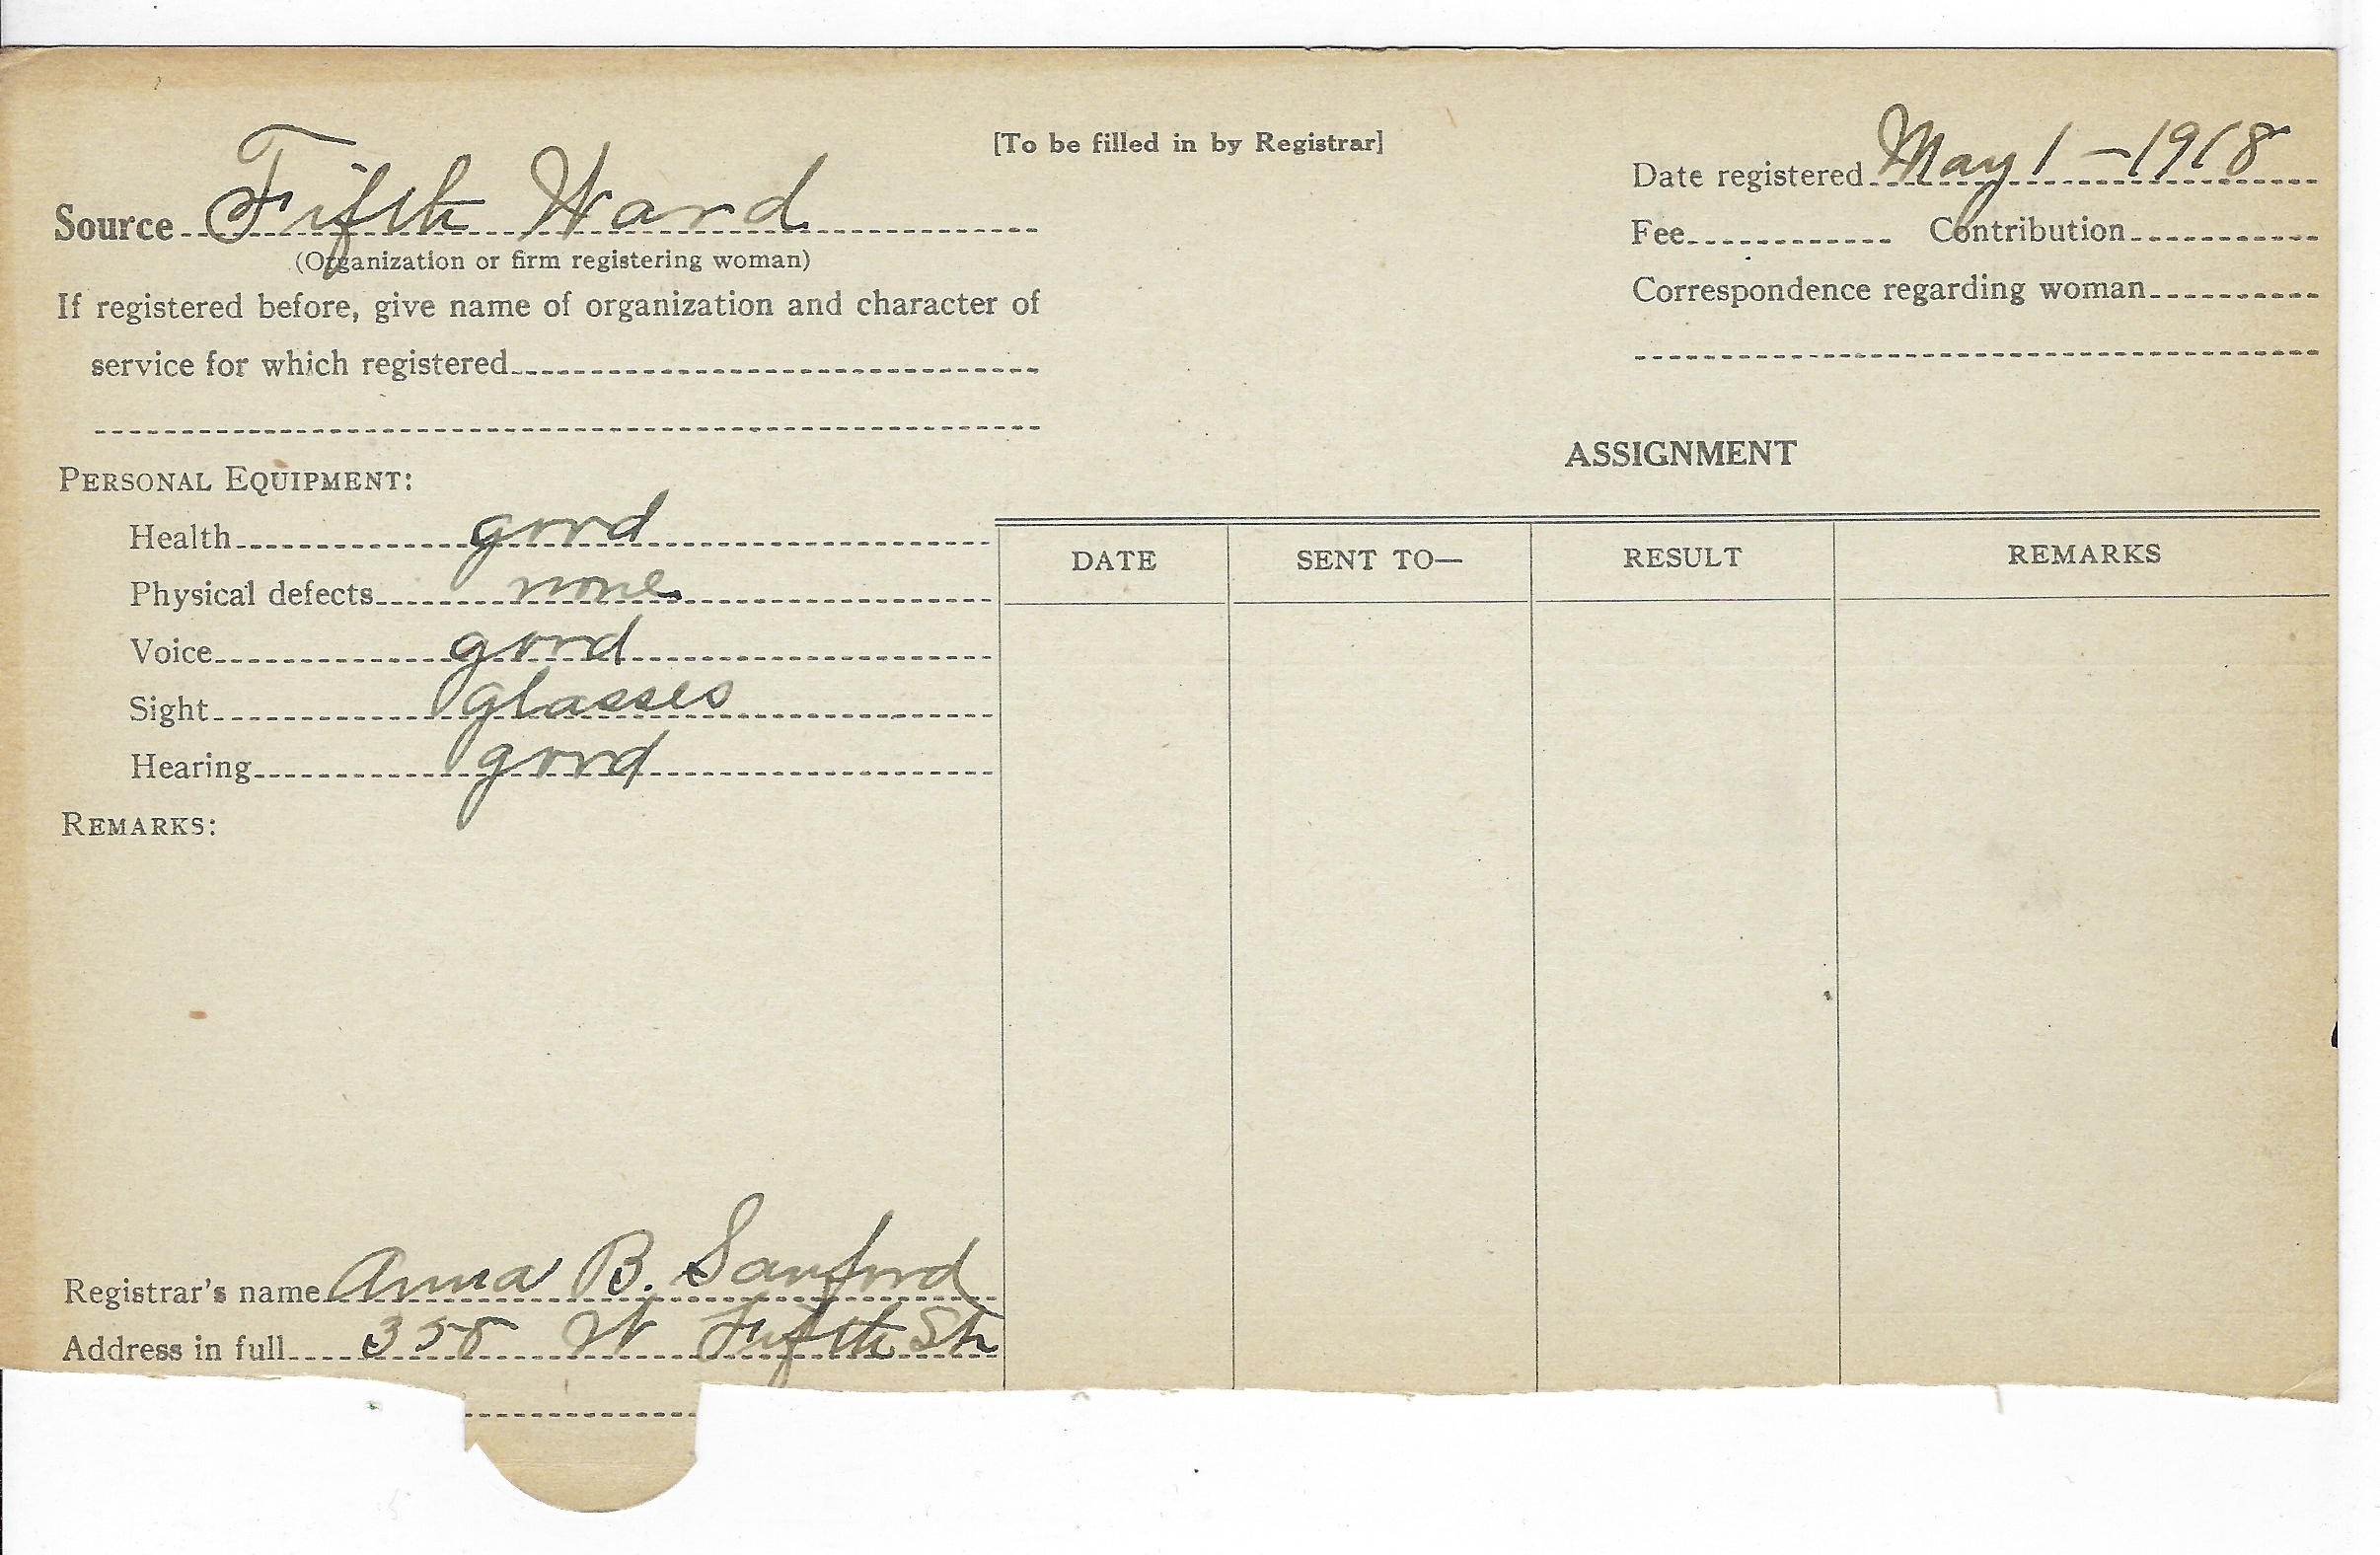 [To be filled in by Registrar]
Source Fifth Ward
(Organization or firm registering woman)
If registered before, give name of organization and character of
service for which registered
Date registered May 1 - 1918
Fee Contribution
Correspondence regarding woman
PERSONAL EQUIPMENT:
Health good
Physical defects none
Voice good
Sight glasses
Hearing good
REMARKS:
ASSIGNMENT
DATE SENT TO— RESULT REMARKS
Registrar's name Anna B. Sanford
Address in full 355 W Fifth St